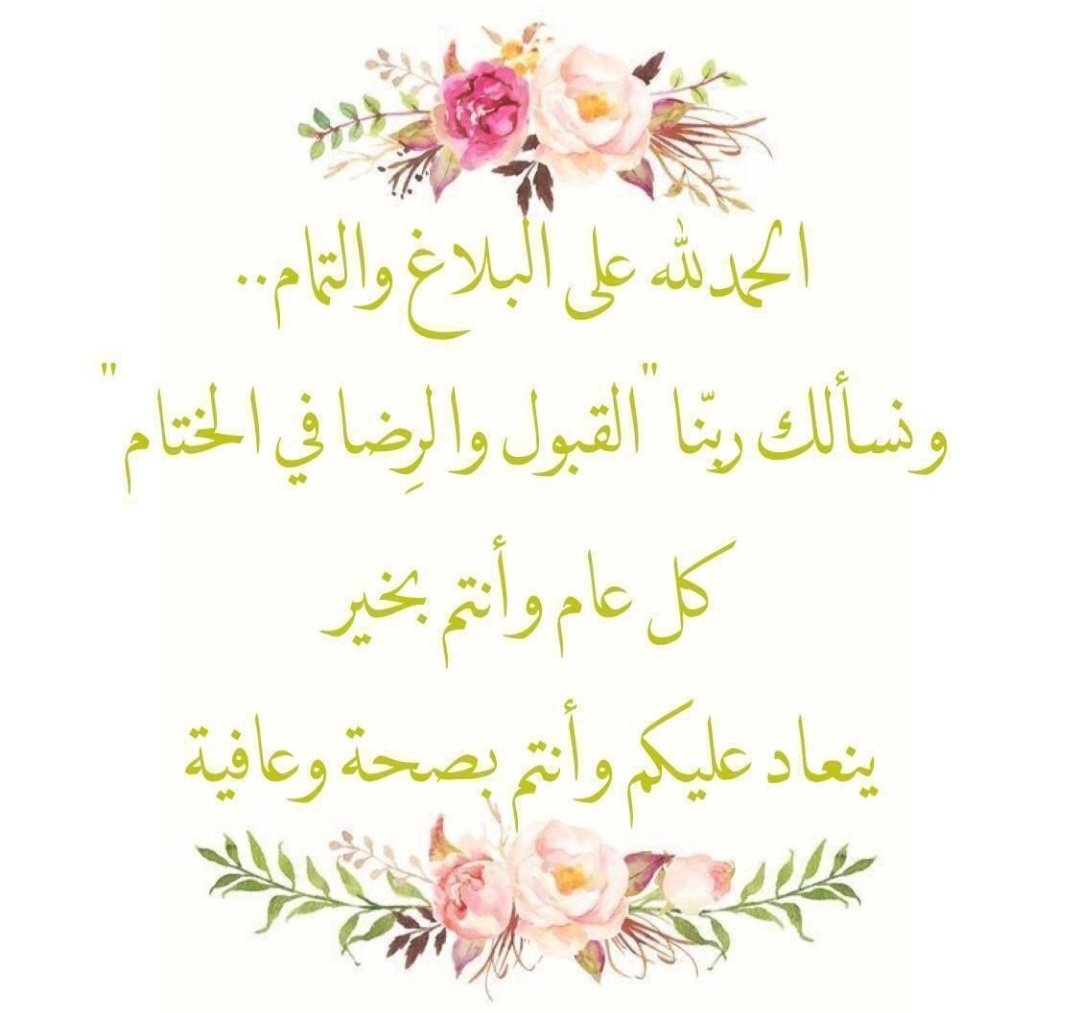 الحمدلله على البلاغ والتمام..
ونسألك ربّنا "القبول والرِضا في الختام"
كل عام وأنتم بخير
ينعاد عليكم وأنتم بصحة وعافية